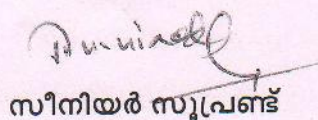 സീനിയർ സൂപ്രണ്ട്